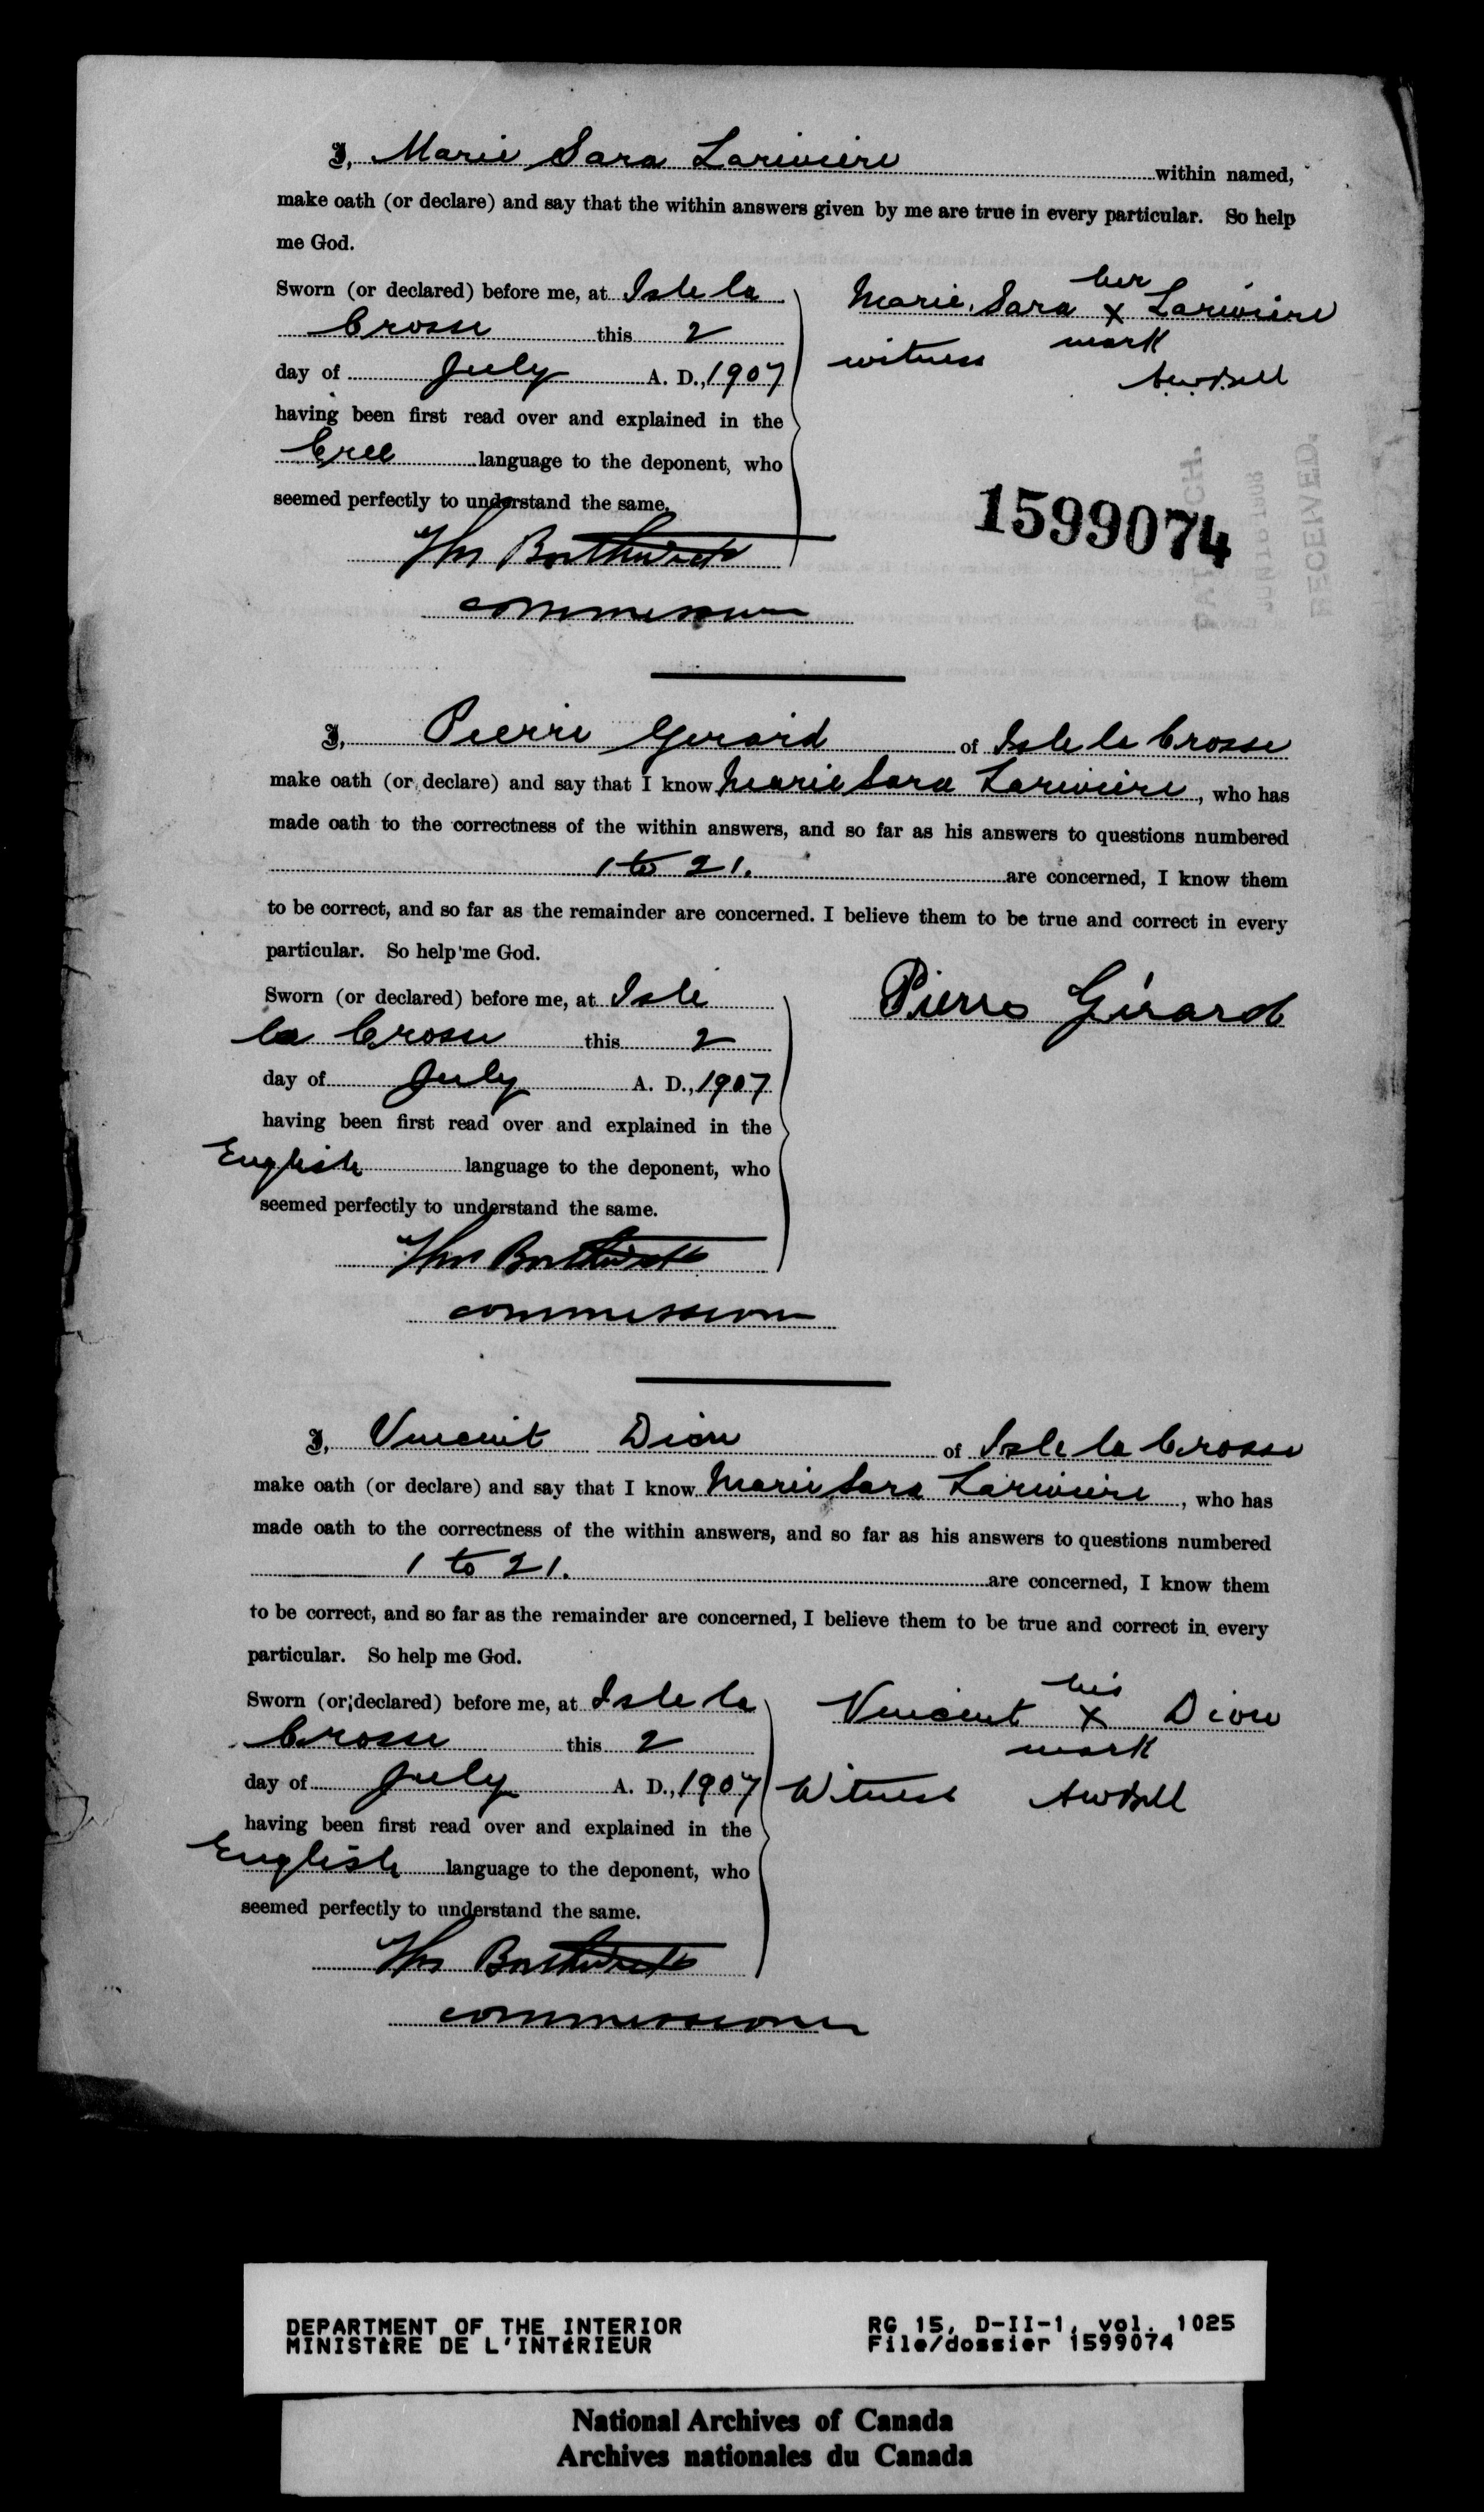 I, Marie Sara Lariviere within named,
make oath (or declare) and say that the within answers given by me are true in every particular. So help
me God.
Sworn (or declared) before me, at Isle la
Crosse this 2
day of July A. D., 1907
having been first read over and explained in the
Cree language to the deponent, who
seemed perfectly to understand the same.
Thos Borthwick
commissioner
Marie Sara her x mark Lariviere
witness
A.W. Bell
1599074
RECEIVED.
I, Pierre Gerard of Isle la Crosse
make oath (or declare) and say that I know Marie Sara Lariviere, who has
made oath to the correctness of the within answers, and so far as his answers to questions numbered
1 to 21. are concerned, I know them
to be correct, and so far as the remainder are concerned. I believe them to be true and correct in every
particular. So help me God.
Sworn (or declared) before me, at Isle
la Crosse this 2
day of July A. D., 1907
having been first read over and explained in the
English language to the deponent, who
seemed perfectly to understand the same.
Thos Borthwick
commissioner
Pierre Girard
I, Vincent Dion of Isle la Crosse
make oath (or declare) and say that I know Marie Sara Lariviere, who has
made oath to the correctness of the within answers, and so far as his answers to questions numbered
1 to 21. are concerned, I know them
to be correct, and so far as the remainder are concerned, I believe them to be true and correct in every
particular. So help me God.
Sworn (or declared) before me, at Isle la
Crosse this 2
day of July A. D., 1907
having been first read over and explained in the
English language to the deponent, who
seemed perfectly to understand the same.
Thos Borthwick
commissioner
Vincent his x mark Dion
Witness AW Bell
DEPARTMENT OF THE INTERIOR
MINISTÈRE DE L'INTÉRIEUR
RG 15, D-II-1, vol. 1025
File/dossier 1599074
National Archives of Canada
Archives nationales du Canada